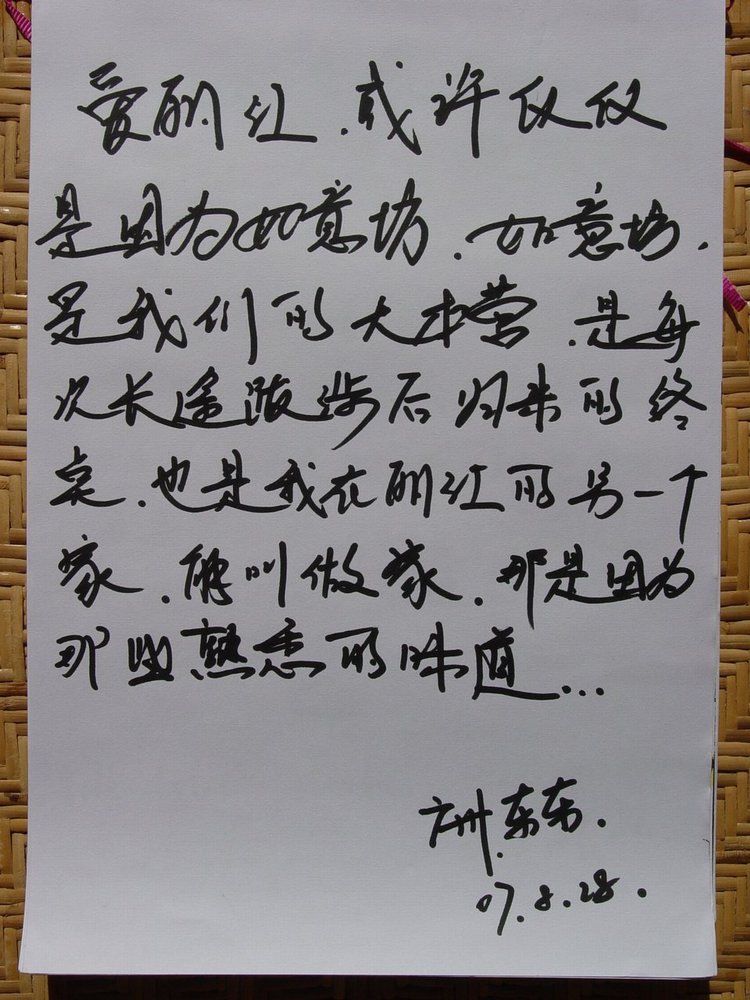 爱丽江.或许仅仅
是因为如意坊.如意坊.
是我们的大本营.是每
次长途跋涉后归来的终
点.也是我在丽江的另一个
家.能叫做家.那是因为
那些熟悉的味道...
广州.东东.
07.8.28.